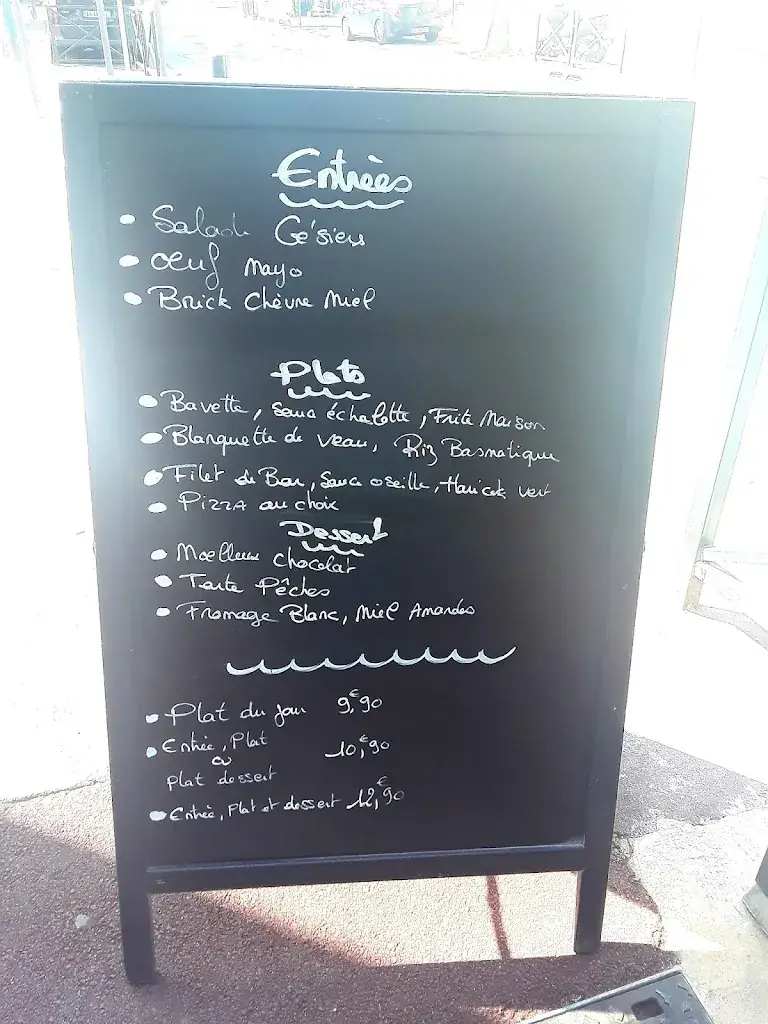 Entrèes
• Salade Gésiers
• Oeuf Mayo
• Brick Chèvre Miel
Plats
• Bavette, Sauce échalotte, Frite Maison
• Blanquette de veau, Riz Basmatique
• Filet de Bar, Sauce oseille, Haricot vert
• Pizza au choix
Dessert
• Moelleux chocolat
• Tarte Pêches
• Fromage Blanc, Miel Amandes
• Plat du jour 9,€90
• Entrée, Plat 10,€90
ou
plat dessert
• Entrée, Plat et dessert 12,€90